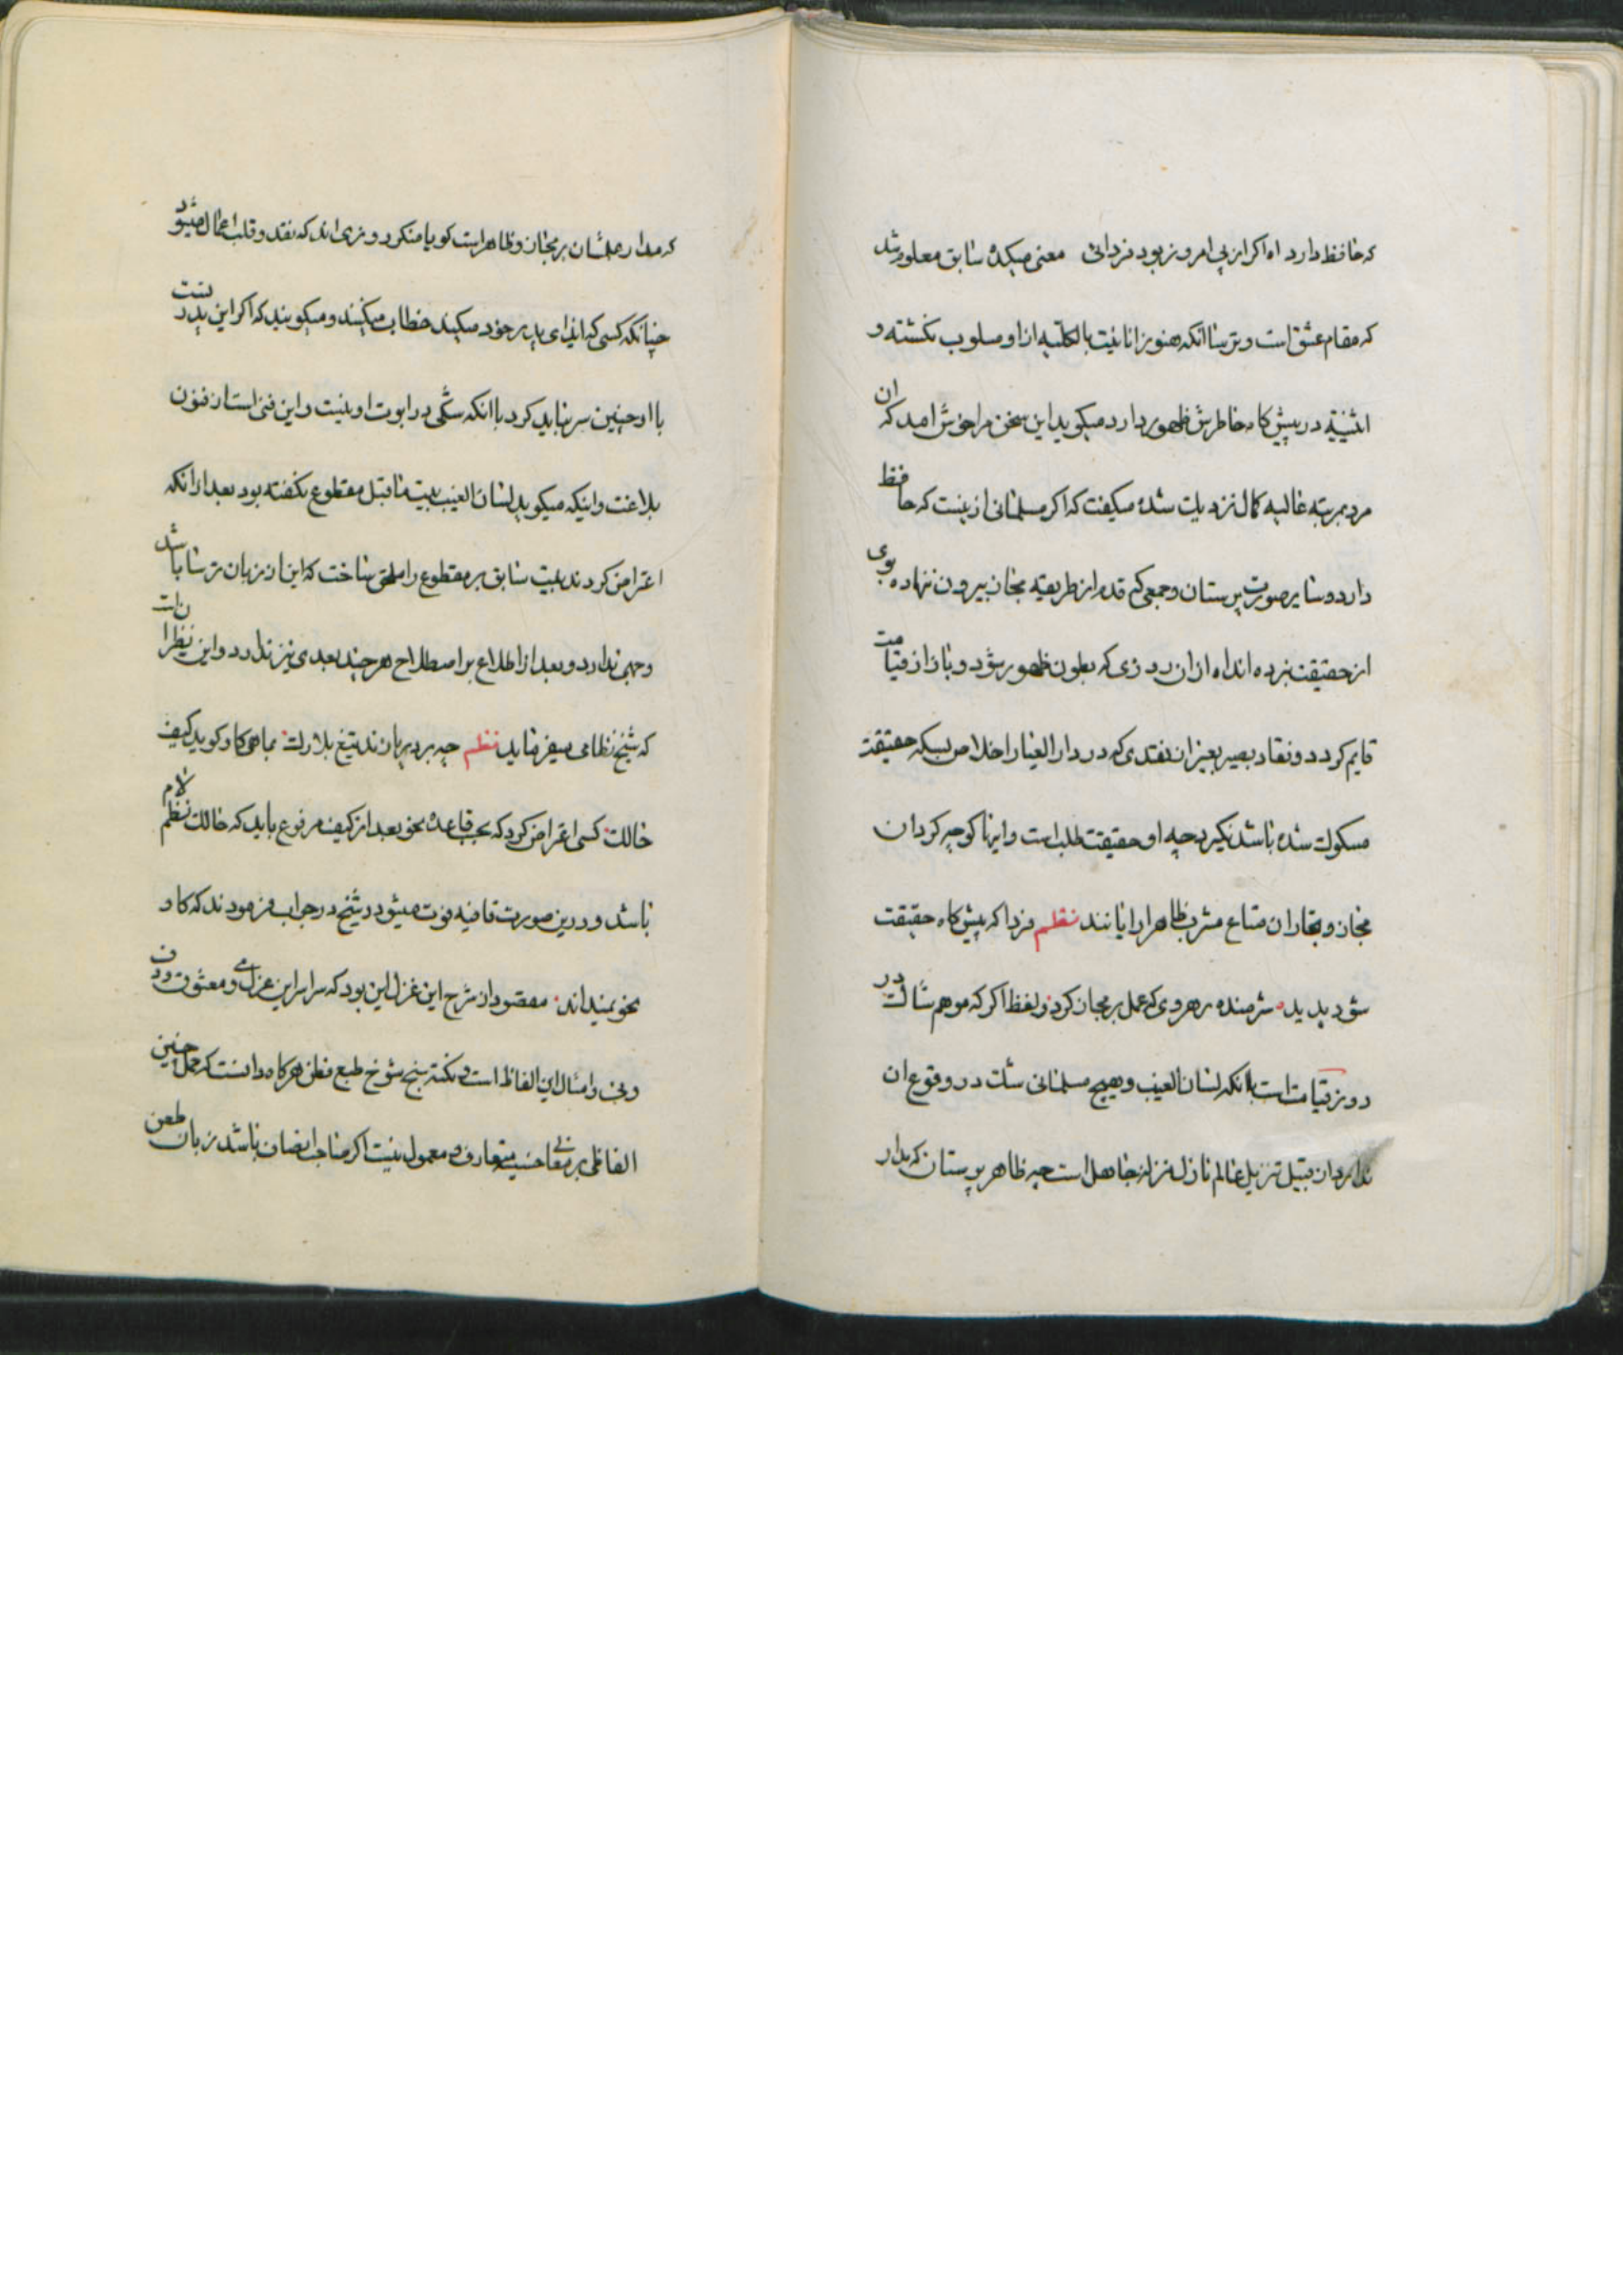 که حافظ دارد اه اکر از پی امروز بود فردائی معنی میکده سابق معلوم شد
که مقام عشق است و ترسا انکه هنوز انانیت بالکلیه از او مسلوب نکشته و
اثنینیة در پیش کاه خاطرش ظهور دارد میکوید این سخن مرا خوش امد که ان
مرد بمرتبه عالیه کمال نزدیک شده میکفت که اکر مسلمانی ازینست که حافظ
دارد و سایر صورت پرستان و جمعی که قدم از طریقه مجاز بیرون ننهاده بوی
از حقیقت نبرده اند اه ازان روزی که بطون ظهور شود و بازار قیامت
قایم کردد و نقاد بصیر بغیر ان نقدی که در دار العیار اخلاص بسکه حقیقت
مسکوک شده باشد نکیرد چه او حقیقت طلب است و اینها کوچه کردان
مجاز و تجاران متاع مشرب ظاهر ارایانند نظم فردا که پیش کاه حقیقت
شود پدید شرمنده رهروی که عمل بر مجاز کرد و لفظ اکر که موهم شک در
روز قیامت است باانکه لسان الغیب و هیچ مسلمانی شک در وقوع ان
ندارد از قبیل تنزیل عالم نازل منزله جاهل است چه ظاهر پرستان که مدار
که مدار عملشان بر مجاز و ظاهر است کویا منکر روزی اند که نقد و قلب اعمال میشود
چنانکه کسی که ایذای پدر خود میکند خطاب میکنند و میکویند که اکر این پدر تست
با او چنین سر نباید کرد باانکه شکی در ابوت او نیست و این فنی است از فنون
بلاغت و اینکه میکوید لسان الغیب بیت ماقبل مقطوع نکفته بود بعد ازانکه
اعتراض کردند بیت سابق بر مقطوع را ملحق ساخت که این از زبان ترسا باشد
وجهی ندارد و بعد از اطلاع بر اصطلاح هر چند بعدی نیز ندارد و این نظیر انست
که شیخ نظامی میفرماید نظم چه برد پهاند تیغ بلارک بماهی کاو کوید کیف
حالک کسی اعتراض کرد که بحسب قاعده نحو بعد از کیف مرفوع باید که حالک نظم لام
باشد و درین صورت قافیه فوت میشود و شیخ در جواب فرمودند که کاو
نحو نمیداند مقصود از شرح این غزل این بود که سراسر این غزل می و معشوق و دف
ونی و امثال این الفاظ است و نکته سنج شوخ طبع فطن هرکاه دانست که حمل چنین
الفاظی بر معانی حسیه متعارف و معمول نیست اکر صاحب انصاف باشد زبان طعن